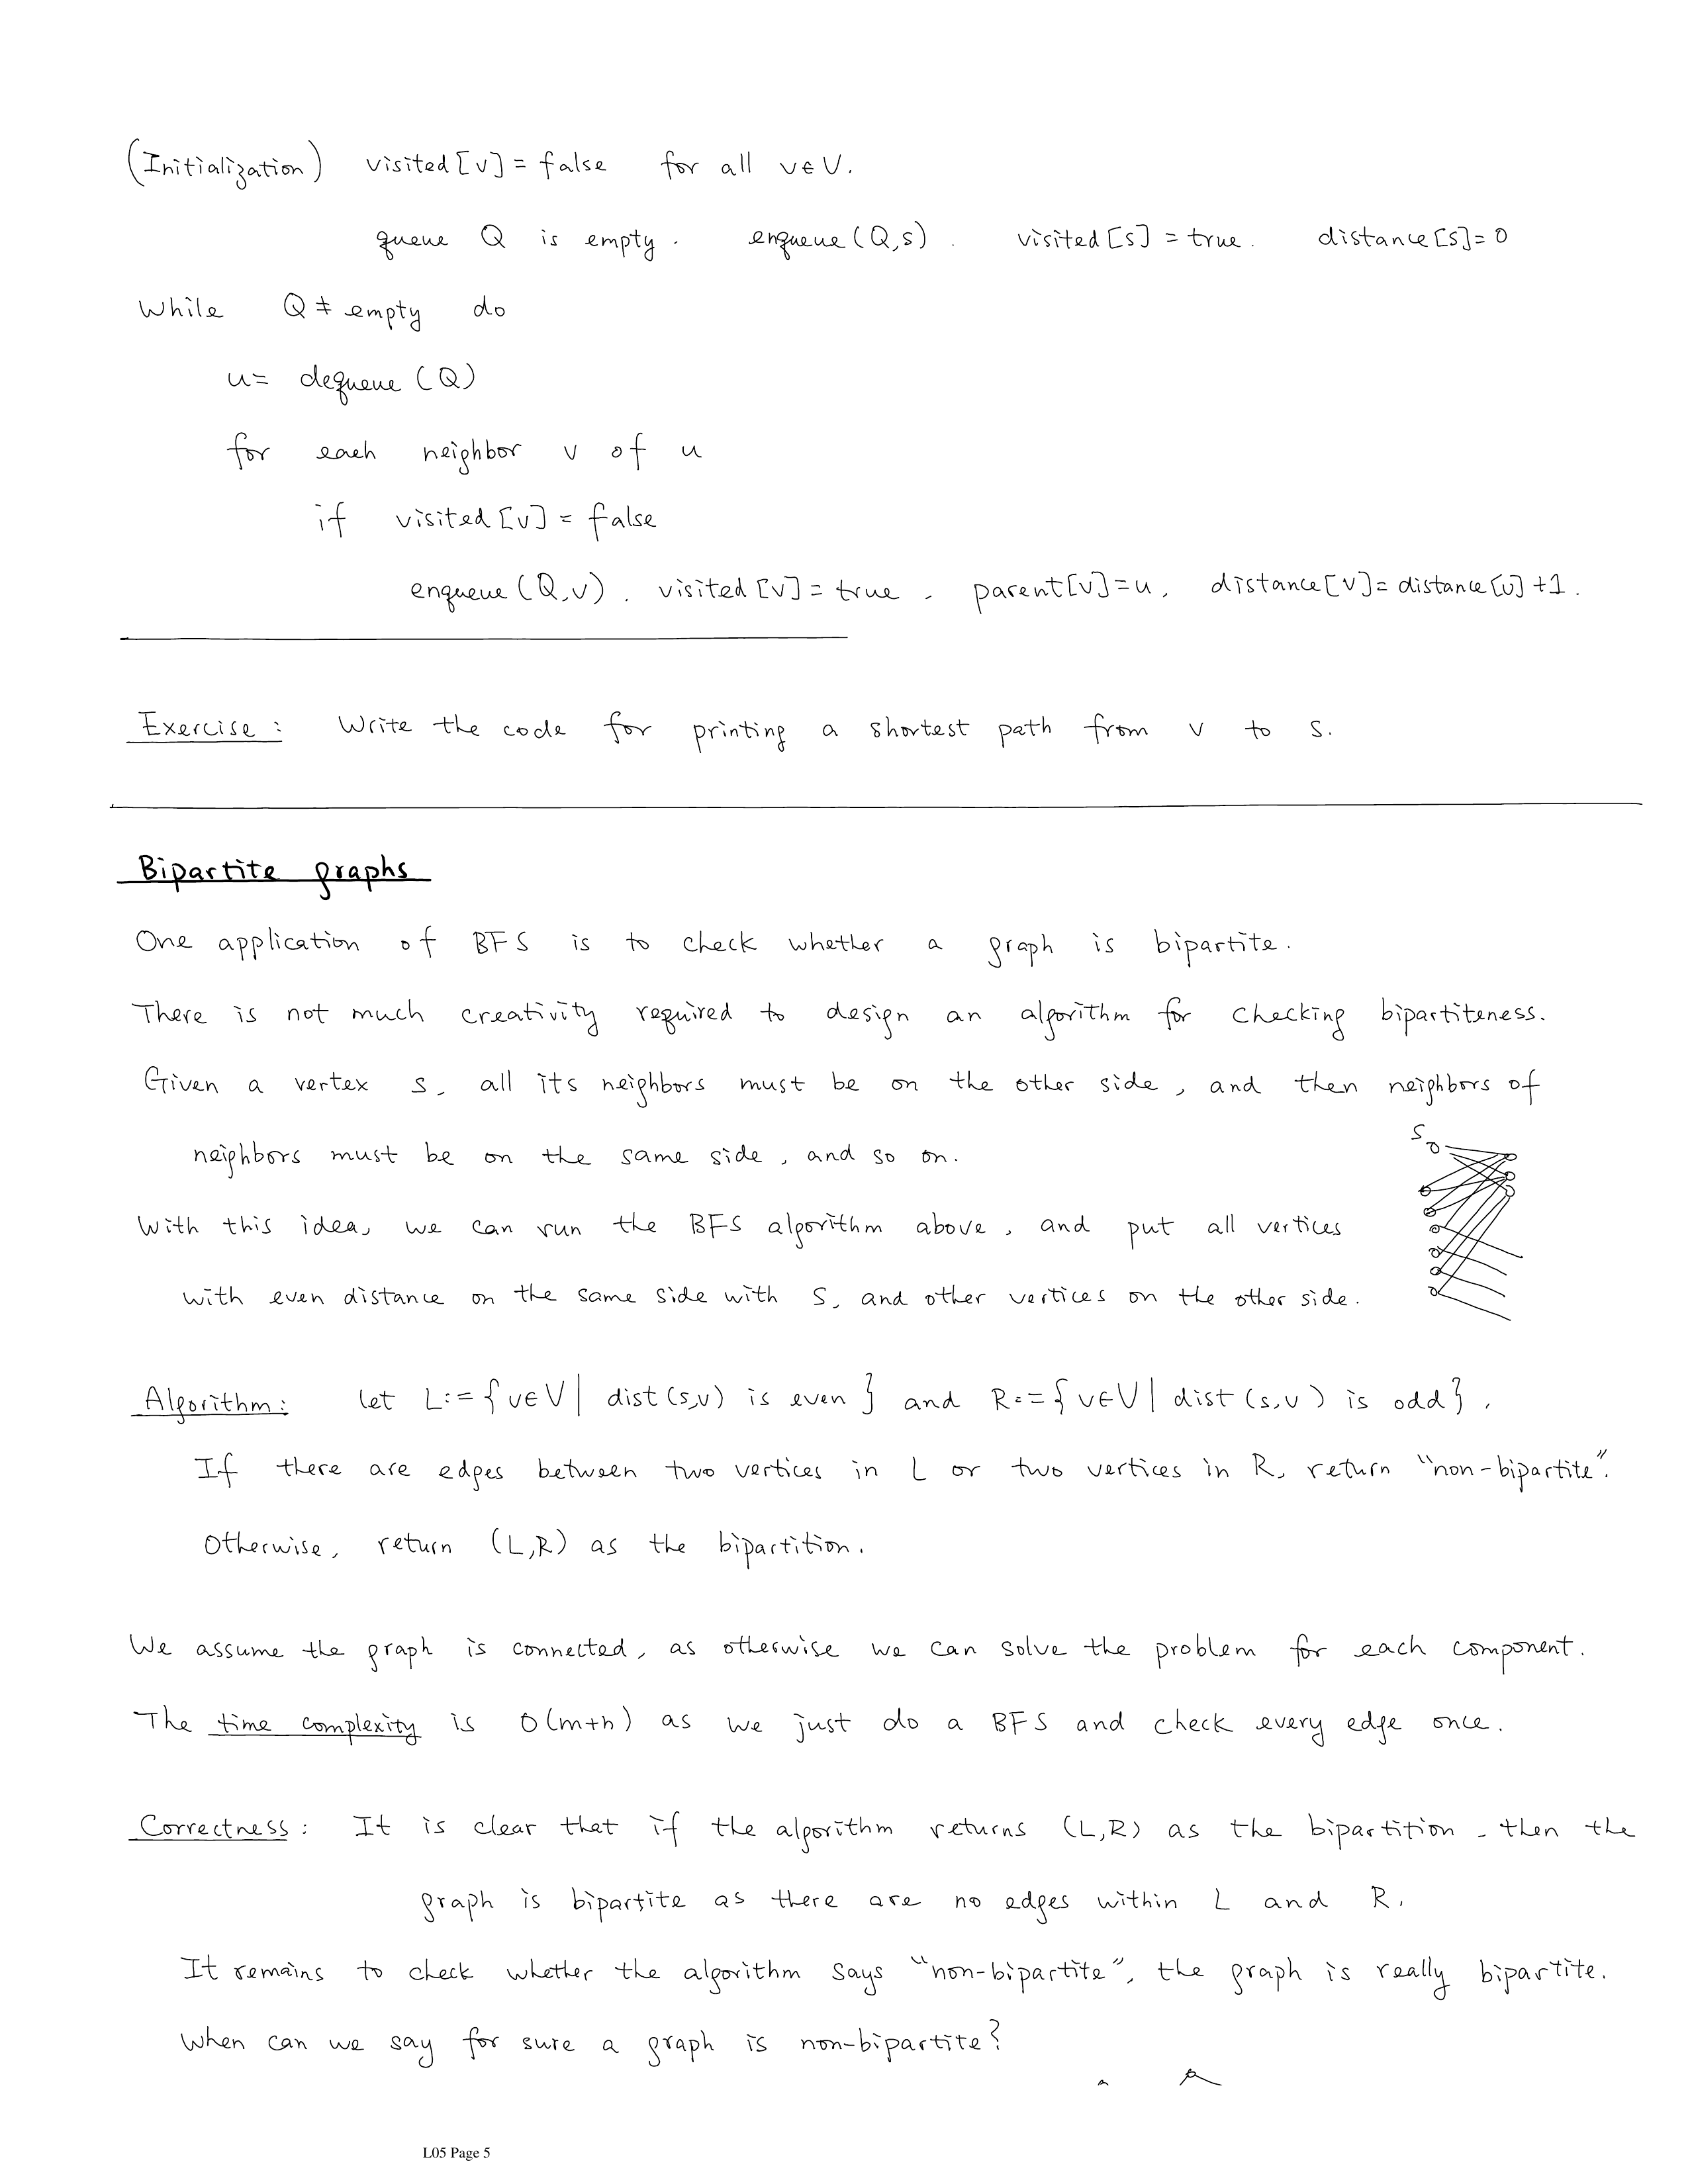 (Initialization) visited[v] = false for all v∈V.
queue Q is empty. enqueue(Q,s). visited[s] = true. distance[s]=0
While Q ≠ empty do
u= dequeue(Q)
for each neighbor v of u
if visited[v] = false
enqueue(Q,v). visited[v] = true. parent[v]=u. distance[v]= distance[u]+1.
Exercise: Write the code for printing a shortest path from v to s.
Bipartite graphs
One application of BFS is to check whether a graph is bipartite.
There is not much creativity required to design an algorithm for checking bipartiteness.
Given a vertex s, all its neighbors must be on the other side, and then neighbors of
neighbors must be on the same side, and so on.
s
With this idea, we can run the BFS algorithm above, and put all vertices
with even distance on the same side with s, and other vertices on the other side.
Algorithm: let L:= {v∈V | dist(s,v) is even} and R:={v∈V | dist(s,v) is odd}.
If there are edges between two vertices in L or two vertices in R, return "non-bipartite".
Otherwise, return (L,R) as the bipartition.
We assume the graph is connected, as otherwise we can solve the problem for each component.
The time complexity is O(m+n) as we just do a BFS and check every edge once.
Correctness: It is clear that if the algorithm returns (L,R) as the bipartition, then the
graph is bipartite as there are no edges within L and R.
It remains to check whether the algorithm says "non-bipartite", the graph is really bipartite.
When can we say for sure a graph is non-bipartite?
L05 Page 5